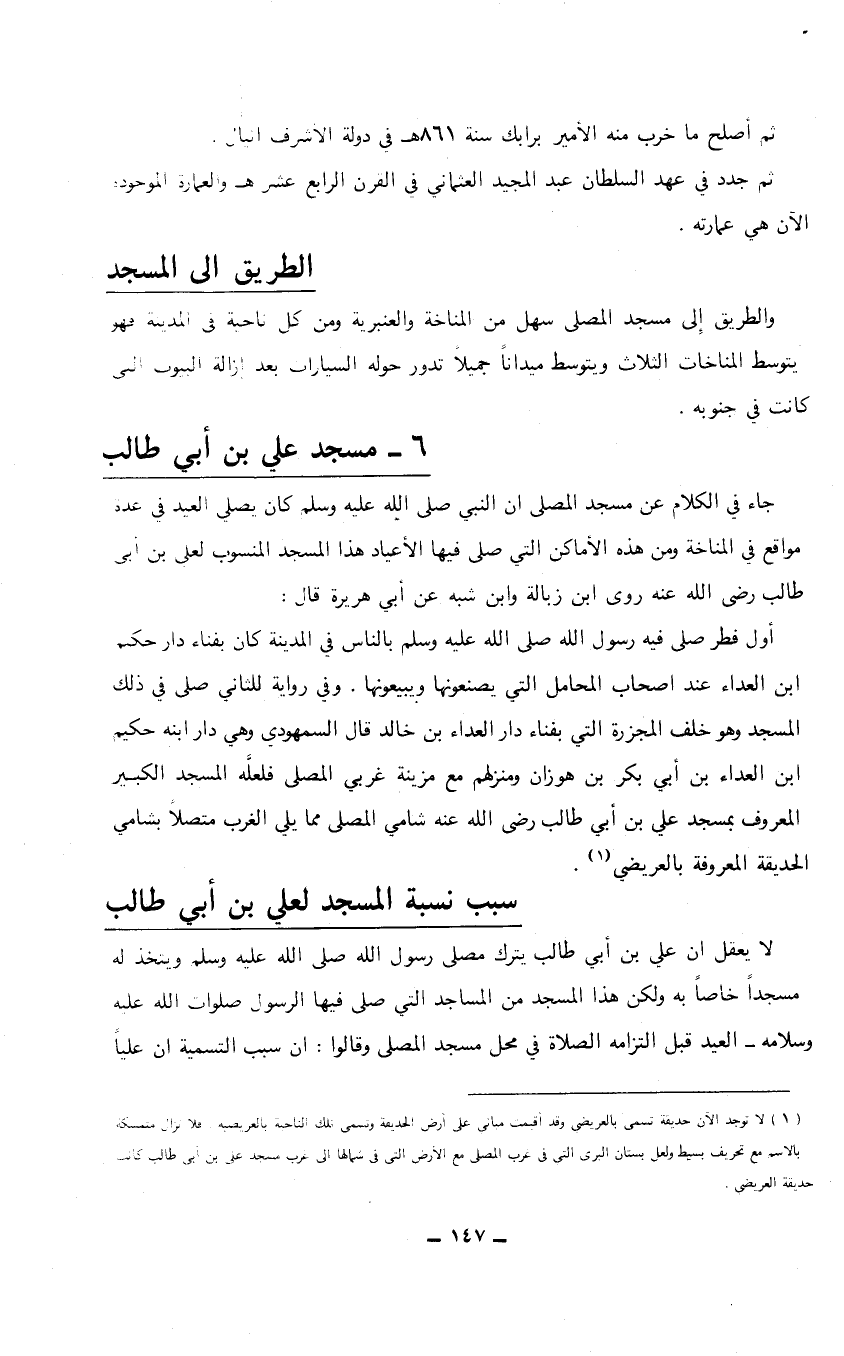 ثم أصلح ما خرب منه الأمير برابك سنة ٨٦١هـ في دولة الأشرف انيال .
ثم جدد في عهد السلطان عبد المجيد العثماني في القرن الرابع عشر هـ والعمارة الموجودة
الآن هي عمارته .
الطريق الى المسجد
والطريق إلى مسجد المصلى سهل من المناخة والعنبرية ومن كل ناحية في المدينة فهو
يتوسط المناخات الثلاث ويتوسط ميداناً جميلاً تدور حوله السيارات بعد إزالة البيوت التي
كانت في جنوبه .
٦ ـ مسجد علي بن أبي طالب
جاء في الكلام عن مسجد المصلى ان النبي صلى الله عليه وسلم كان يصلي العيد في عدة
مواقع في المناخة ومن هذه الأماكن التي صلى فيها الأعياد هذا المسجد المنسوب لعلي بن أبي
طالب رضى الله عنه روى ابن زبالة وابن شبه عن أبي هريرة قال :
أول فطر صلى فيه رسول الله صلى الله عليه وسلم بالناس في المدينة كان بفناء دار حكيم
ابن العداء عند اصحاب المحامل التي يصنعونها ويبيعونها . وفي رواية للثاني صلى في ذلك
المسجد وهو خلف المجزرة التي بفناء دار العداء بن خالد قال السمهودي وهي دار ابنه حكيم
ابن العداء بن أبي بكر بن هوزان ومنزلهم مع مزينة غربي المصلى فلعلَّه المسجد الكبير
المعروف بمسجد علي بن أبي طالب رضى الله عنه شامي المصلى مما يلي الغرب متصلاً بشامي
الحديقة المعروفة بالعريضي(١) .
سبب نسبة المسجد لعلي بن أبي طالب
لا يعقل ان علي بن أبي طالب يترك مصلى رسول الله صلى الله عليه وسلم ويتخذ له
مسجداً خاصاً به ولكن هذا المسجد من المساجد التي صلى فيها الرسول صلوات الله عليه
وسلامه ـ العيد قبل التزامه الصلاة في محل مسجد المصلى وقالوا : ان سبب التسمية ان علياً
( ١ ) لا توجد الآن حديقة تسمى بالعريضي وقد أقيمت مباني على أرض الحديقة وتسمى تلك الناحية بالعريضيه . فلا تزال متمسكة
بالاسم مع تحريف بسيط ولعل بستان البرى التى فى غرب المصلى مع الأرض التى فى شمالها الى غرب مسجد على بن أبي طالب كانت
حديقة العريضي .
ـ ١٤٧ ـ